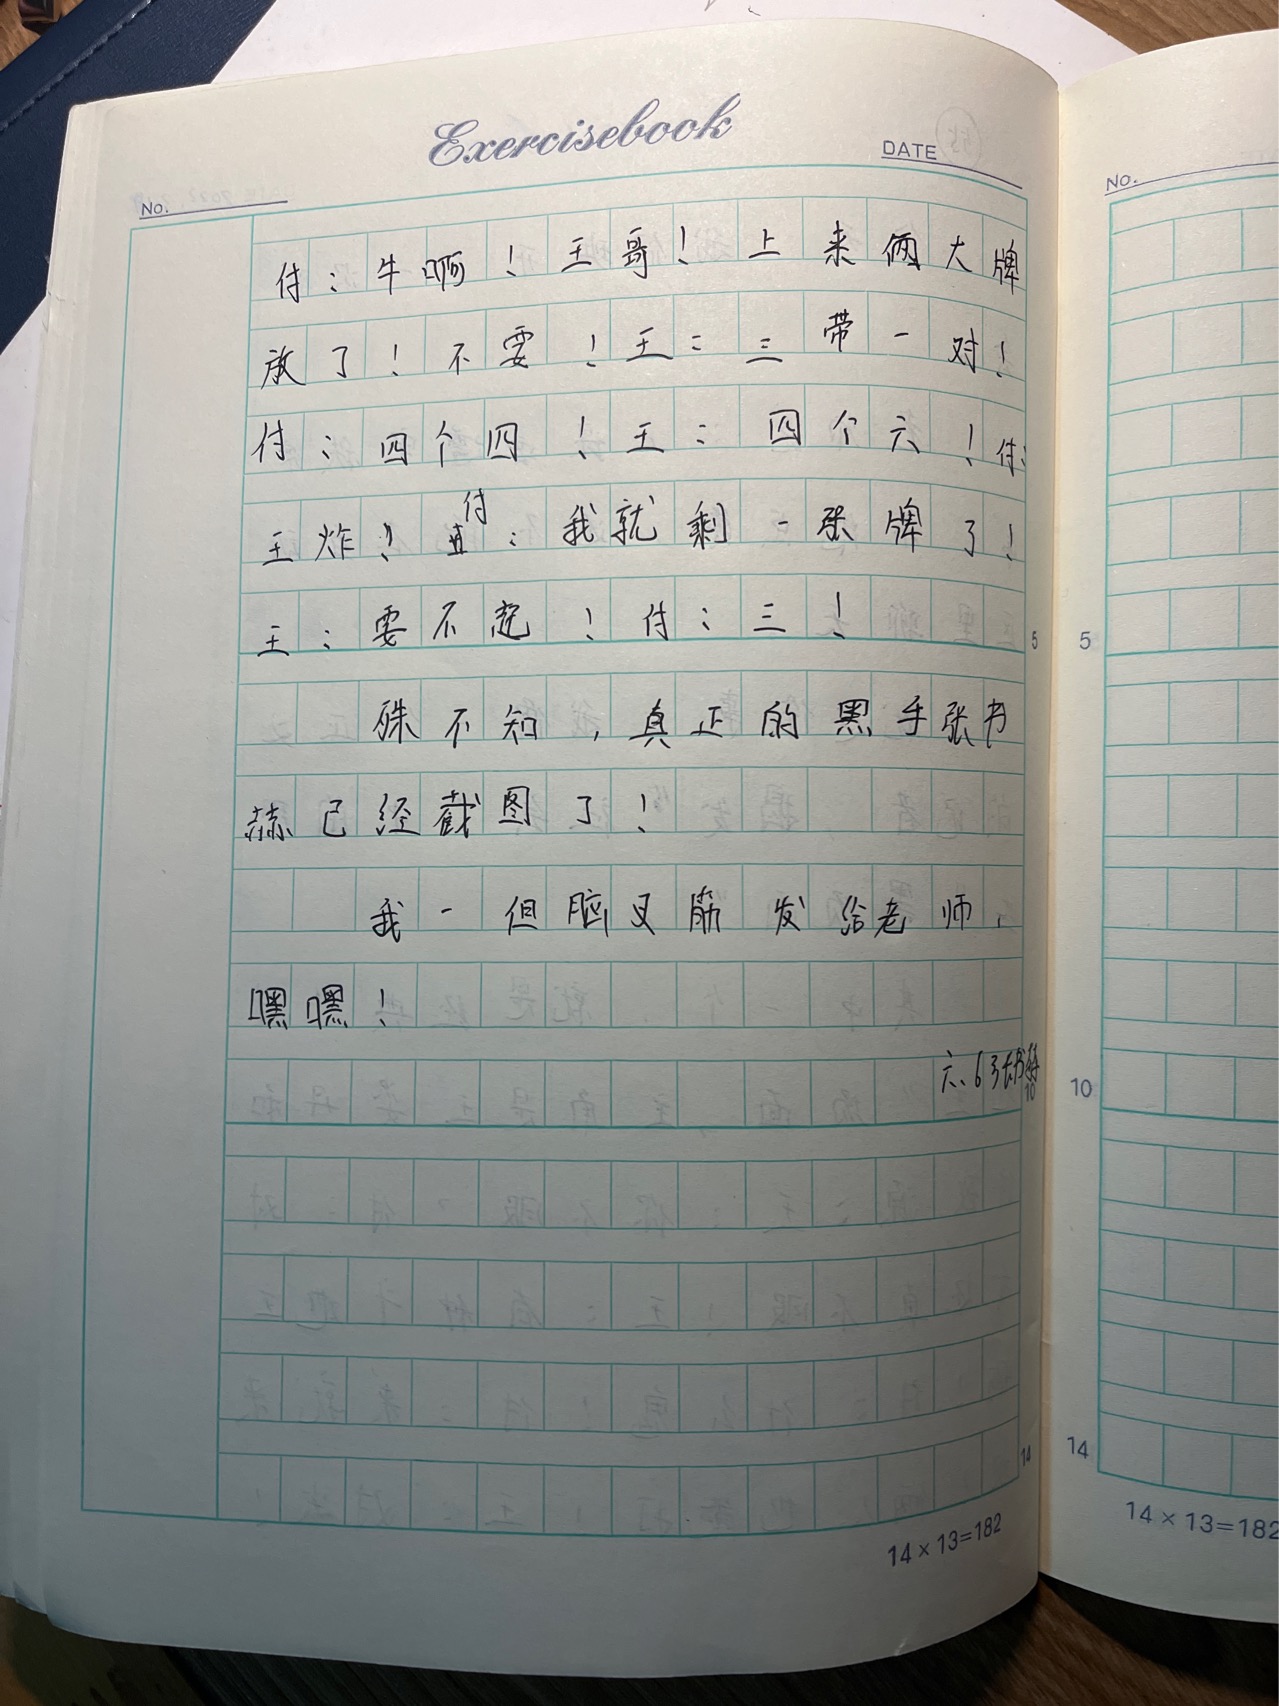 Exercisebook
DATE
No.
付：牛啊！王哥！上来俩大牌
放了！不要！王：三带一对！
付：四个四！王：四个六！付：
王炸！付：我就剩一张牌了！
王：要不起！付：三！
殊不知，真正的黑手张书
赫已经截图了！
我一但脑叉筋发给老师，
嘿嘿！
六.6张书赫
5
10
14
14×13=182
No.
5
10
14
14×13=182